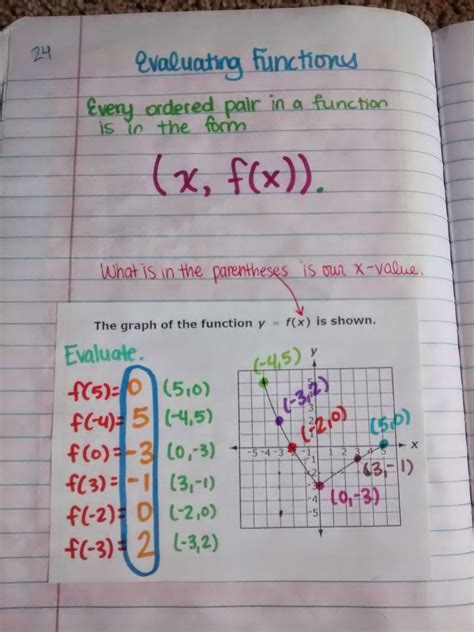 24
Evaluating Functions
Every ordered pair in a function
is in the form
(x, f(x)).
What is in the parentheses is our x-value.
The graph of the function y = f(x) is shown.
Evaluate.
f(5)= 0 (5,0)
f(-4)= 5 (-4,5)
f(0)= -3 (0,-3)
f(3)= -1 (3,-1)
f(-2)= 0 (-2,0)
f(-3)= 2 (-3,2)
(-4,5)
y
(-3,2)
(-2,0)
(5,0)
-5 -4 -3 -1 1 2 3 4 5 x
(3,-1)
(0,-3)